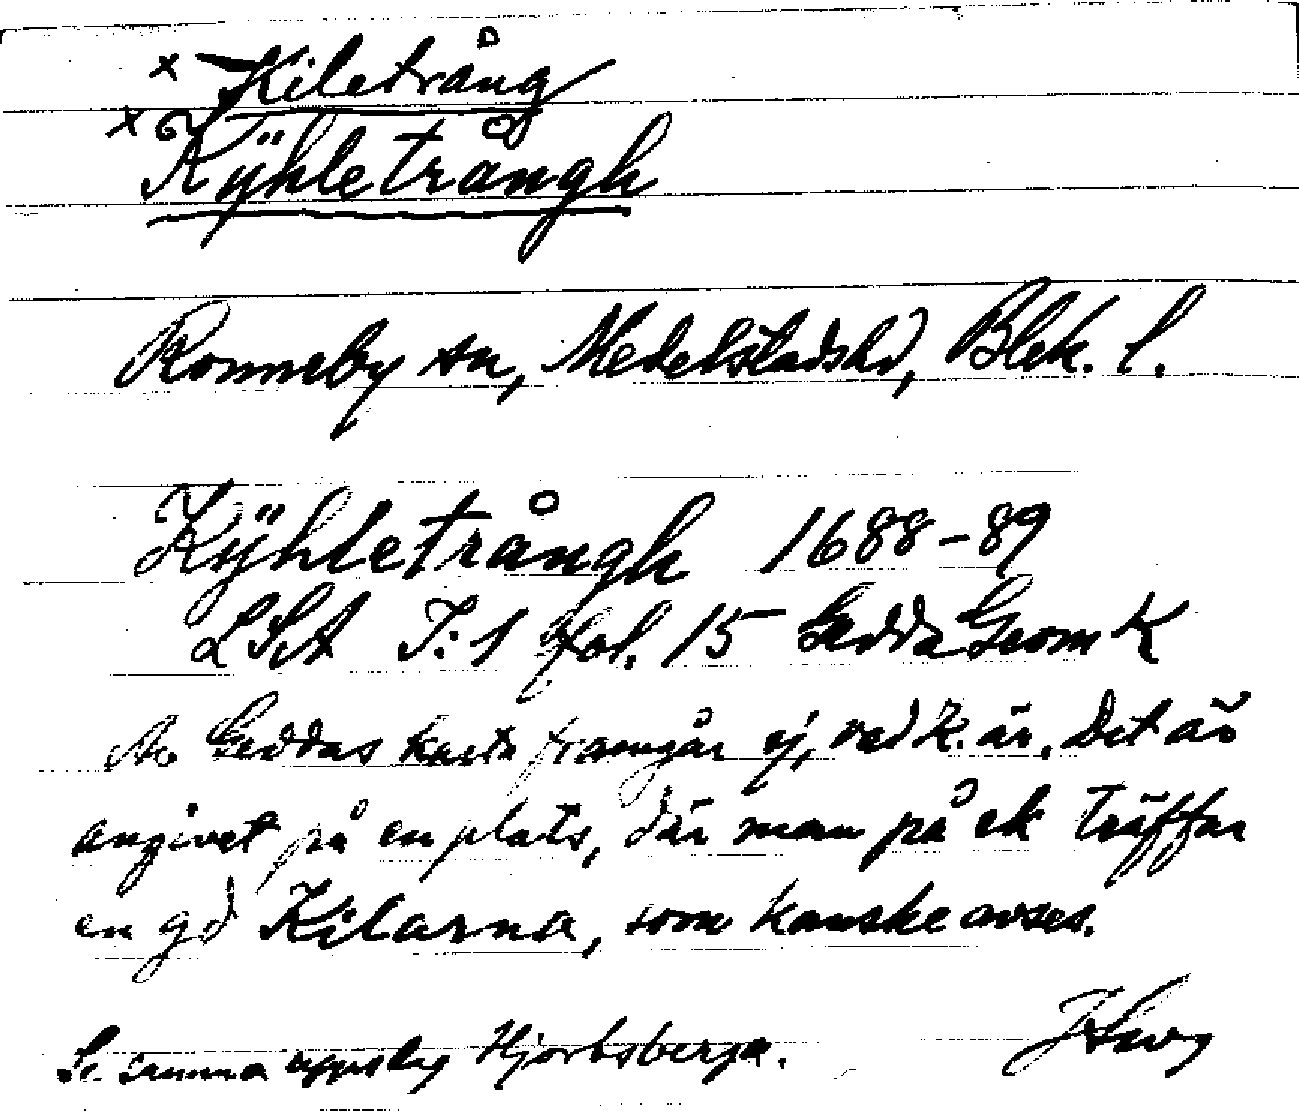 x Kiletrång
x Kÿhletrångh
Ronneby sn, Medelstadshd, Blek. l.
Kÿhletrångh 1688-89
LSA I:1 fol. 15 Gedda Geom K
Av Geddas karta framgår ej, vad K. är. Det är
angivet på en plats, där man på ek träffar
en gd Kilarna, som kanske avses.
Se samma uppslag Hjortsberga.